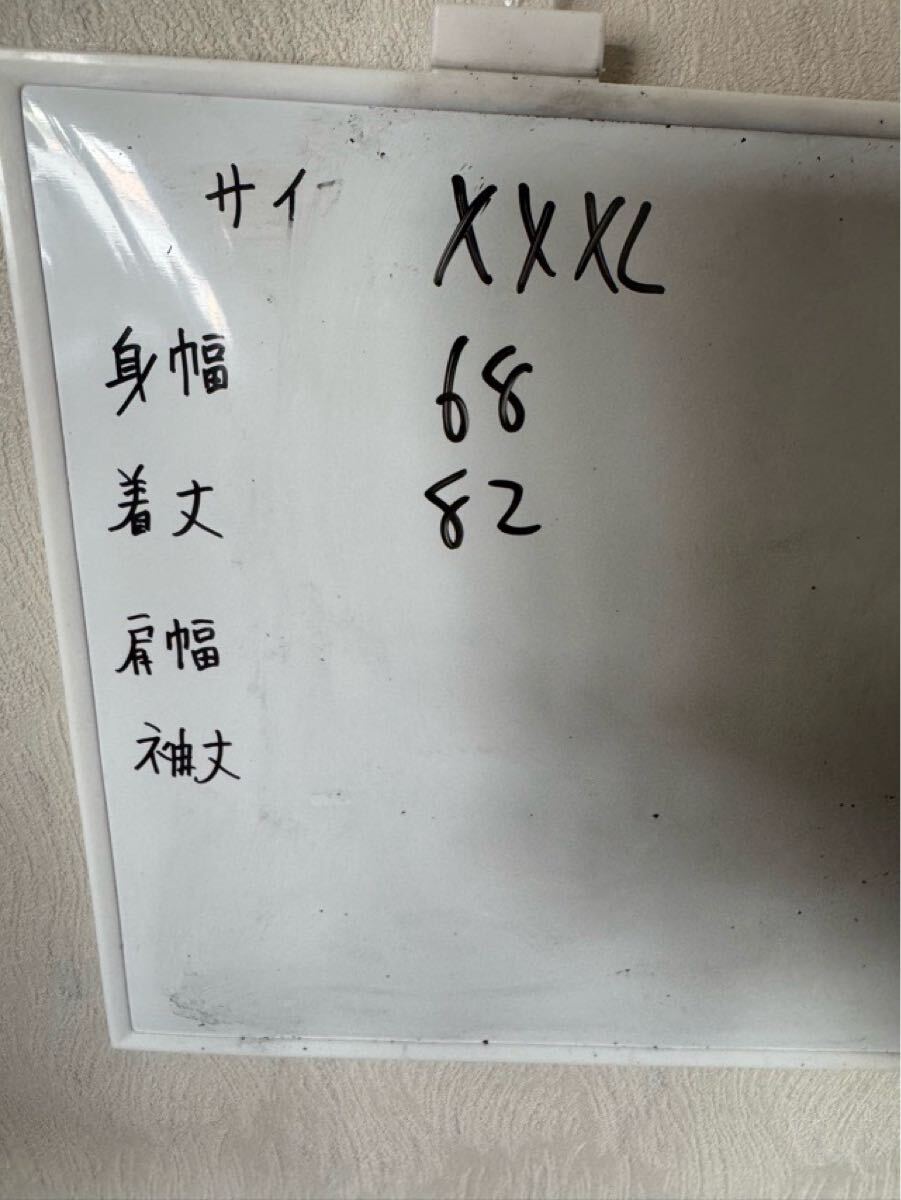 サイ XXXL
身幅 68
着丈 82
肩幅
袖丈